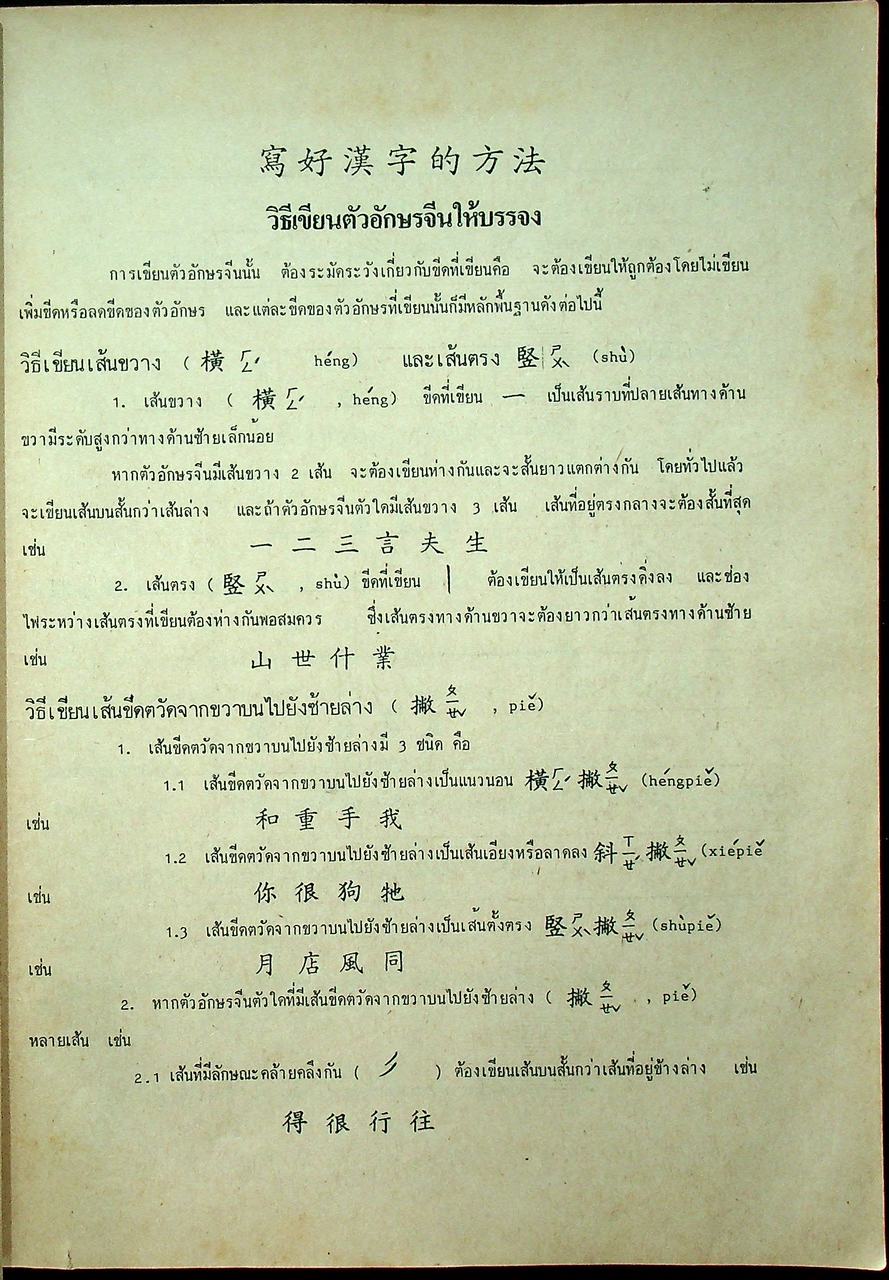 寫好漢字的方法
วิธีเขียนตัวอักษรจีนให้บรรจง
การเขียนตัวอักษรจีนนั้น ต้องระมัดระวังเกี่ยวกับขีดที่เขียนคือ จะต้องเขียนให้ถูกต้องโดยไม่เขียน
เพิ่มขีดหรือลดขีดของตัวอักษร และแต่ละขีดของตัวอักษรที่เขียนนั้นก็มีหลักพื้นฐานดังต่อไปนี้
วิธีเขียนเส้นขวาง ( 橫 ㄏㄥˊ héng) และเส้นตรง 竪 ㄕㄨˋ (shù)
1. เส้นขวาง ( 橫 ㄏㄥˊ , héng) ขีดที่เขียน 一 เป็นเส้นราบที่ปลายเส้นทางด้าน
ขวามีระดับสูงกว่าทางด้านซ้ายเล็กน้อย
หากตัวอักษรจีนมีเส้นขวาง 2 เส้น จะต้องเขียนห่างกันและจะสั้นยาวแตกต่างกัน โดยทั่วไปแล้ว
จะเขียนเส้นบนสั้นกว่าเส้นล่าง และถ้าตัวอักษรจีนตัวใดมีเส้นขวาง 3 เส้น เส้นที่อยู่ตรงกลางจะต้องสั้นที่สุด
เช่น 一 二 三 言 夫 生
2. เส้นตรง ( 竪 ㄕㄨˋ , shù) ขีดที่เขียน 丨 ต้องเขียนให้เป็นเส้นตรงดิ่งลง และช่อง
ไฟระหว่างเส้นตรงที่เขียนต้องห่างกันพอสมควร ซึ่งเส้นตรงทางด้านขวาจะต้องยาวกว่าเส้นตรงทางด้านซ้าย
เช่น 山 世 什 業
วิธีเขียนเส้นขีดตวัดจากขวาบนไปยังซ้ายล่าง ( 撇 ㄆㄧㄝˇ , piě)
1. เส้นขีดตวัดจากขวาบนไปยังซ้ายล่างมี 3 ชนิด คือ
1.1 เส้นขีดตวัดจากขวาบนไปยังซ้ายล่างเป็นแนวนอน 橫ㄏㄥˊ撇ㄆㄧㄝˇ (héngpiě)
เช่น 和 重 手 我
1.2 เส้นขีดตวัดจากขวาบนไปยังซ้ายล่างเป็นเส้นเอียงหรือลาดลง 斜ㄒㄧㄝˊ撇ㄆㄧㄝˇ (xiépiě
เช่น 你 很 狗 牠
1.3 เส้นขีดตวัดจากขวาบนไปยังซ้ายล่างเป็นเส้นตั้งตรง 竪ㄕㄨˋ撇ㄆㄧㄝˇ (shùpiě)
เช่น 月 店 風 同
2. หากตัวอักษรจีนตัวใดที่มีเส้นขีดตวัดจากขวาบนไปยังซ้ายล่าง ( 撇 ㄆㄧㄝˇ , piě)
หลายเส้น เช่น
2.1 เส้นที่มีลักษณะคล้ายคลึงกัน ( ) ต้องเขียนเส้นบนสั้นกว่าเส้นที่อยู่ข้างล่าง เช่น
得 很 行 往